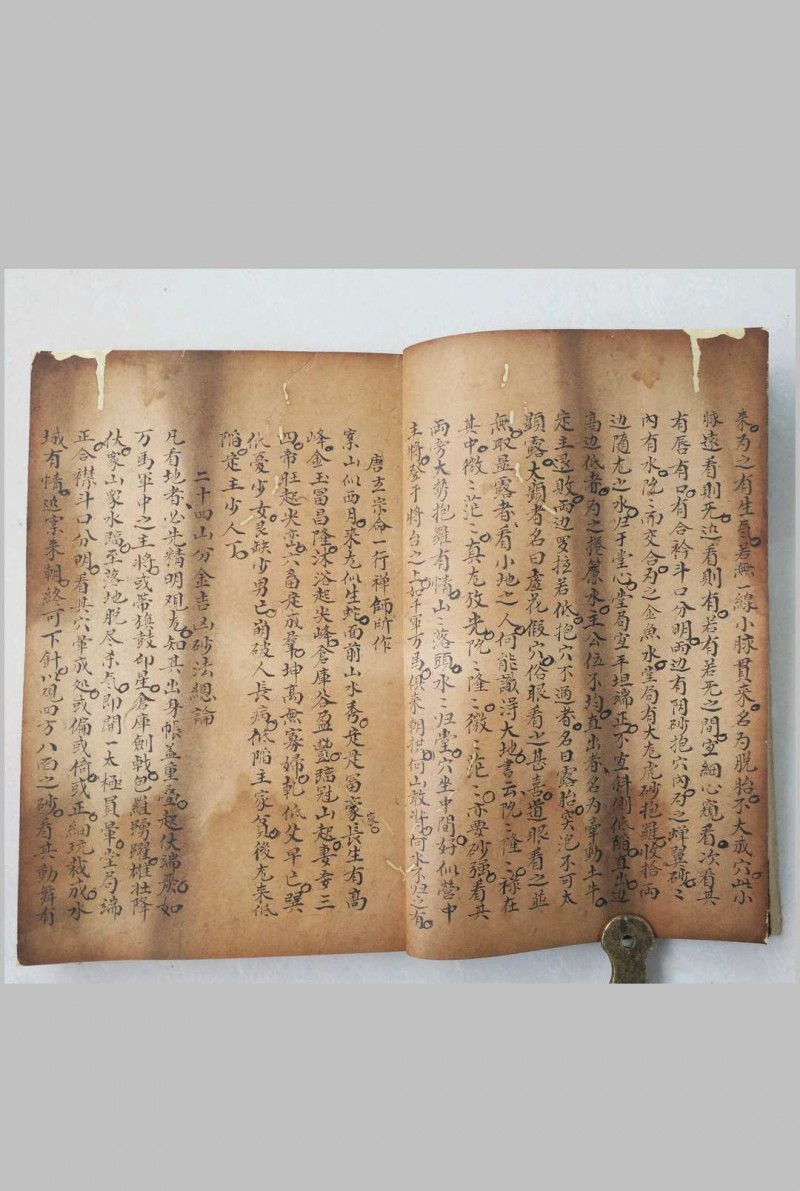 来为之有生氣若無一線小脉貫来名為脱胎不大成穴此小
脉遠看則无近看則有若有若无之間宜細心窺看次看其
有唇有口有合衿斗口分明両辺有阴砂抱穴內为之蟬翼砂〻
內有水院〻而交合为之金魚水堂局有大龙虎砂抱羅收拾両
边隨龙之水归于堂心堂局宜平坦端正不宜斜側低陷直出边
高边低者为之捲簾水主公位不均直出者名为牽動土牛
定主退敗両边罗拉若低抱穴不過者名曰露胎穴沉不可太
顕露太顕者名曰虚花假穴俗眼看之甚喜道眼看之並
無取显露者看小地之人何能識淂大地書云院〻隆〻禄在
其中微〻茫〻真龙放光院〻隆〻微〻茫〻亦要砂強看其
両旁大势抱羅有情山〻落頭水〻归堂穴坐中間好似营中
主將登于將台之上好千軍万馬俱来朝拱何山敢背何水不归之有
唐玄宗命一行禅師所作
案山似西月来龙似生蛇面前山水秀定是冨家長生有高
峰金玉冨昌隆沐浴起尖峰倉庫谷盈豐臨冠山起妻妾三
四帝壮起尖峦六畜定成羣坤高無寡婦乾低父早亡巽
低憂少女艮缺少男亡崩破人長病低陷主家貧後龙来低
陷定主少人丁
二十四山分金吉凶砂法總論
凡看地者必先精明观龙知其出身帳盖重叠起伏端严如
万馬軍中之主將或帯旗鼓印星倉庫劍戟包羅踴躍雄壮降
伏眾山眾水臨至落地脱尽杀气即開一太極員暈堂局端
正合襟斗口分明看其穴暈或处或偏或倚或正細玩裁成水
城有情近案来朝終可下針以观四方八面之砂看其動舞有